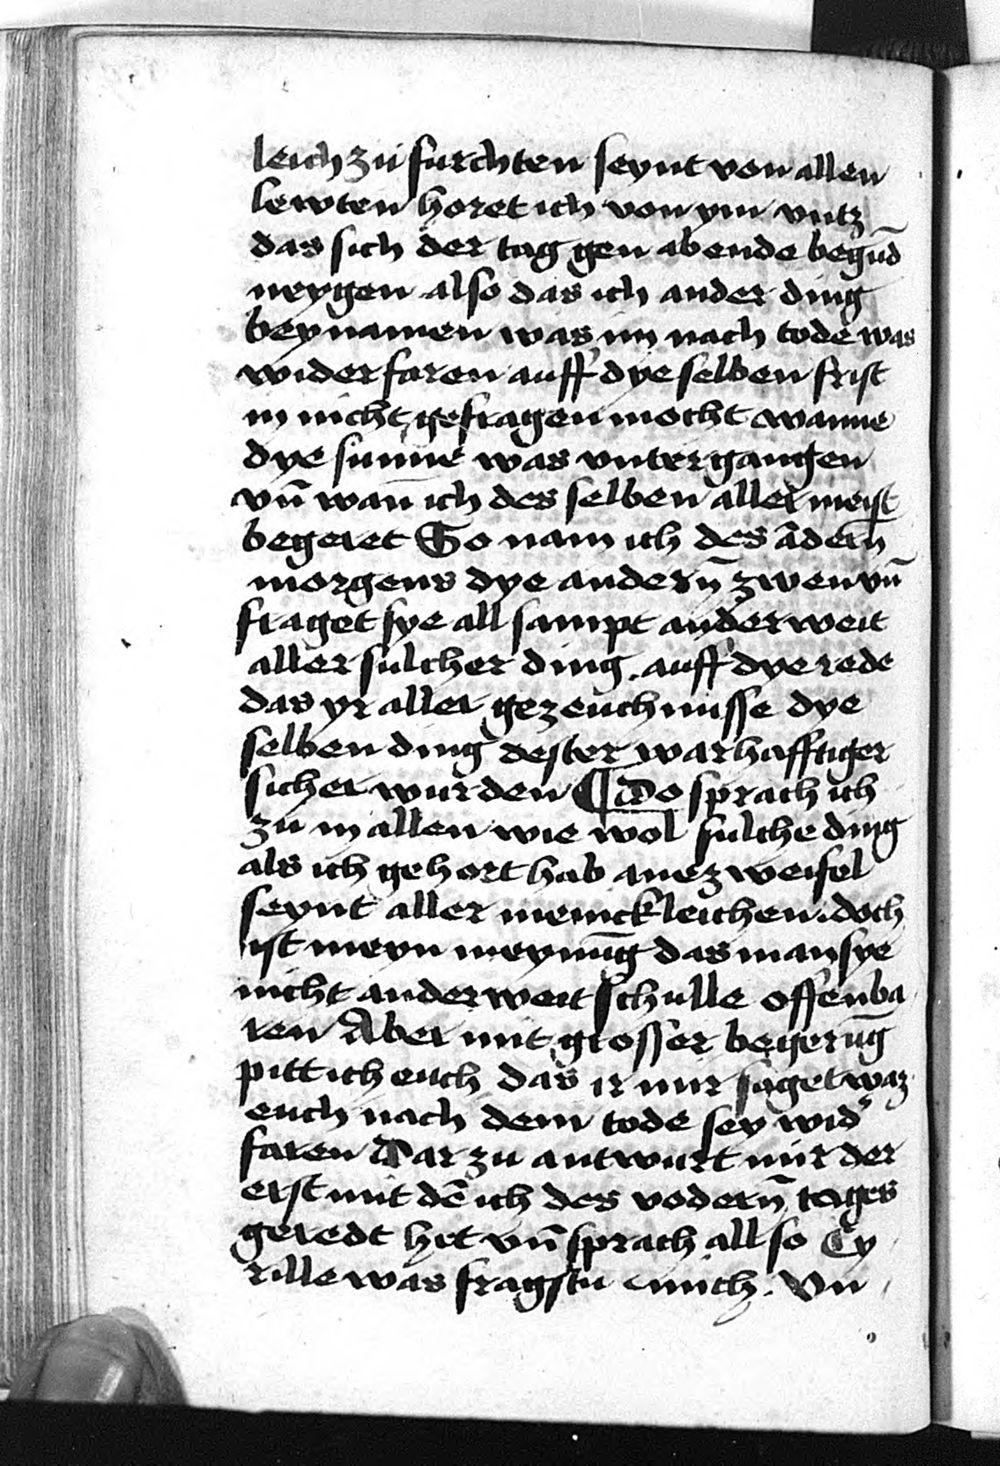 leich zu furchten seynt von allen
lewten horet ich von ym untz
das sich der tag gen abende begūd
neygen also das ich ander ding
beynamen was im nach tode was
widerfaren auff dye selben frist
in nicht gefragen mocht wanne
dye sunne was untergangen
vn̄ wan̄ ich des selben aller meist
begeret So nam ich des ādern̄
morgens dye andern̄ zwen vn̄
fraget sye all sampt anderweit
aller sulcher ding. auff dye rede
das yr aller gezeuchnusse dye
selben ding dester warhafftiger
sicher wurden ¶ Do sprach ich
zu in allen wie wol sulche ding
als ich gehort hab anezweifel
seynt aller menickleichen. doch
ist meyn meynūg das man sye
nicht anderweit schulle offenba
ren Aber mit grosser begerūg
pitt ich euch das ir mir saget waz
euch nach dem tode sey wid'
faren Dar zu antwurt mir der
erst mit dē ich des vodern̄ tages
geredt het vn̄ sprach allso Cy
rille was fragstu mich. Vn